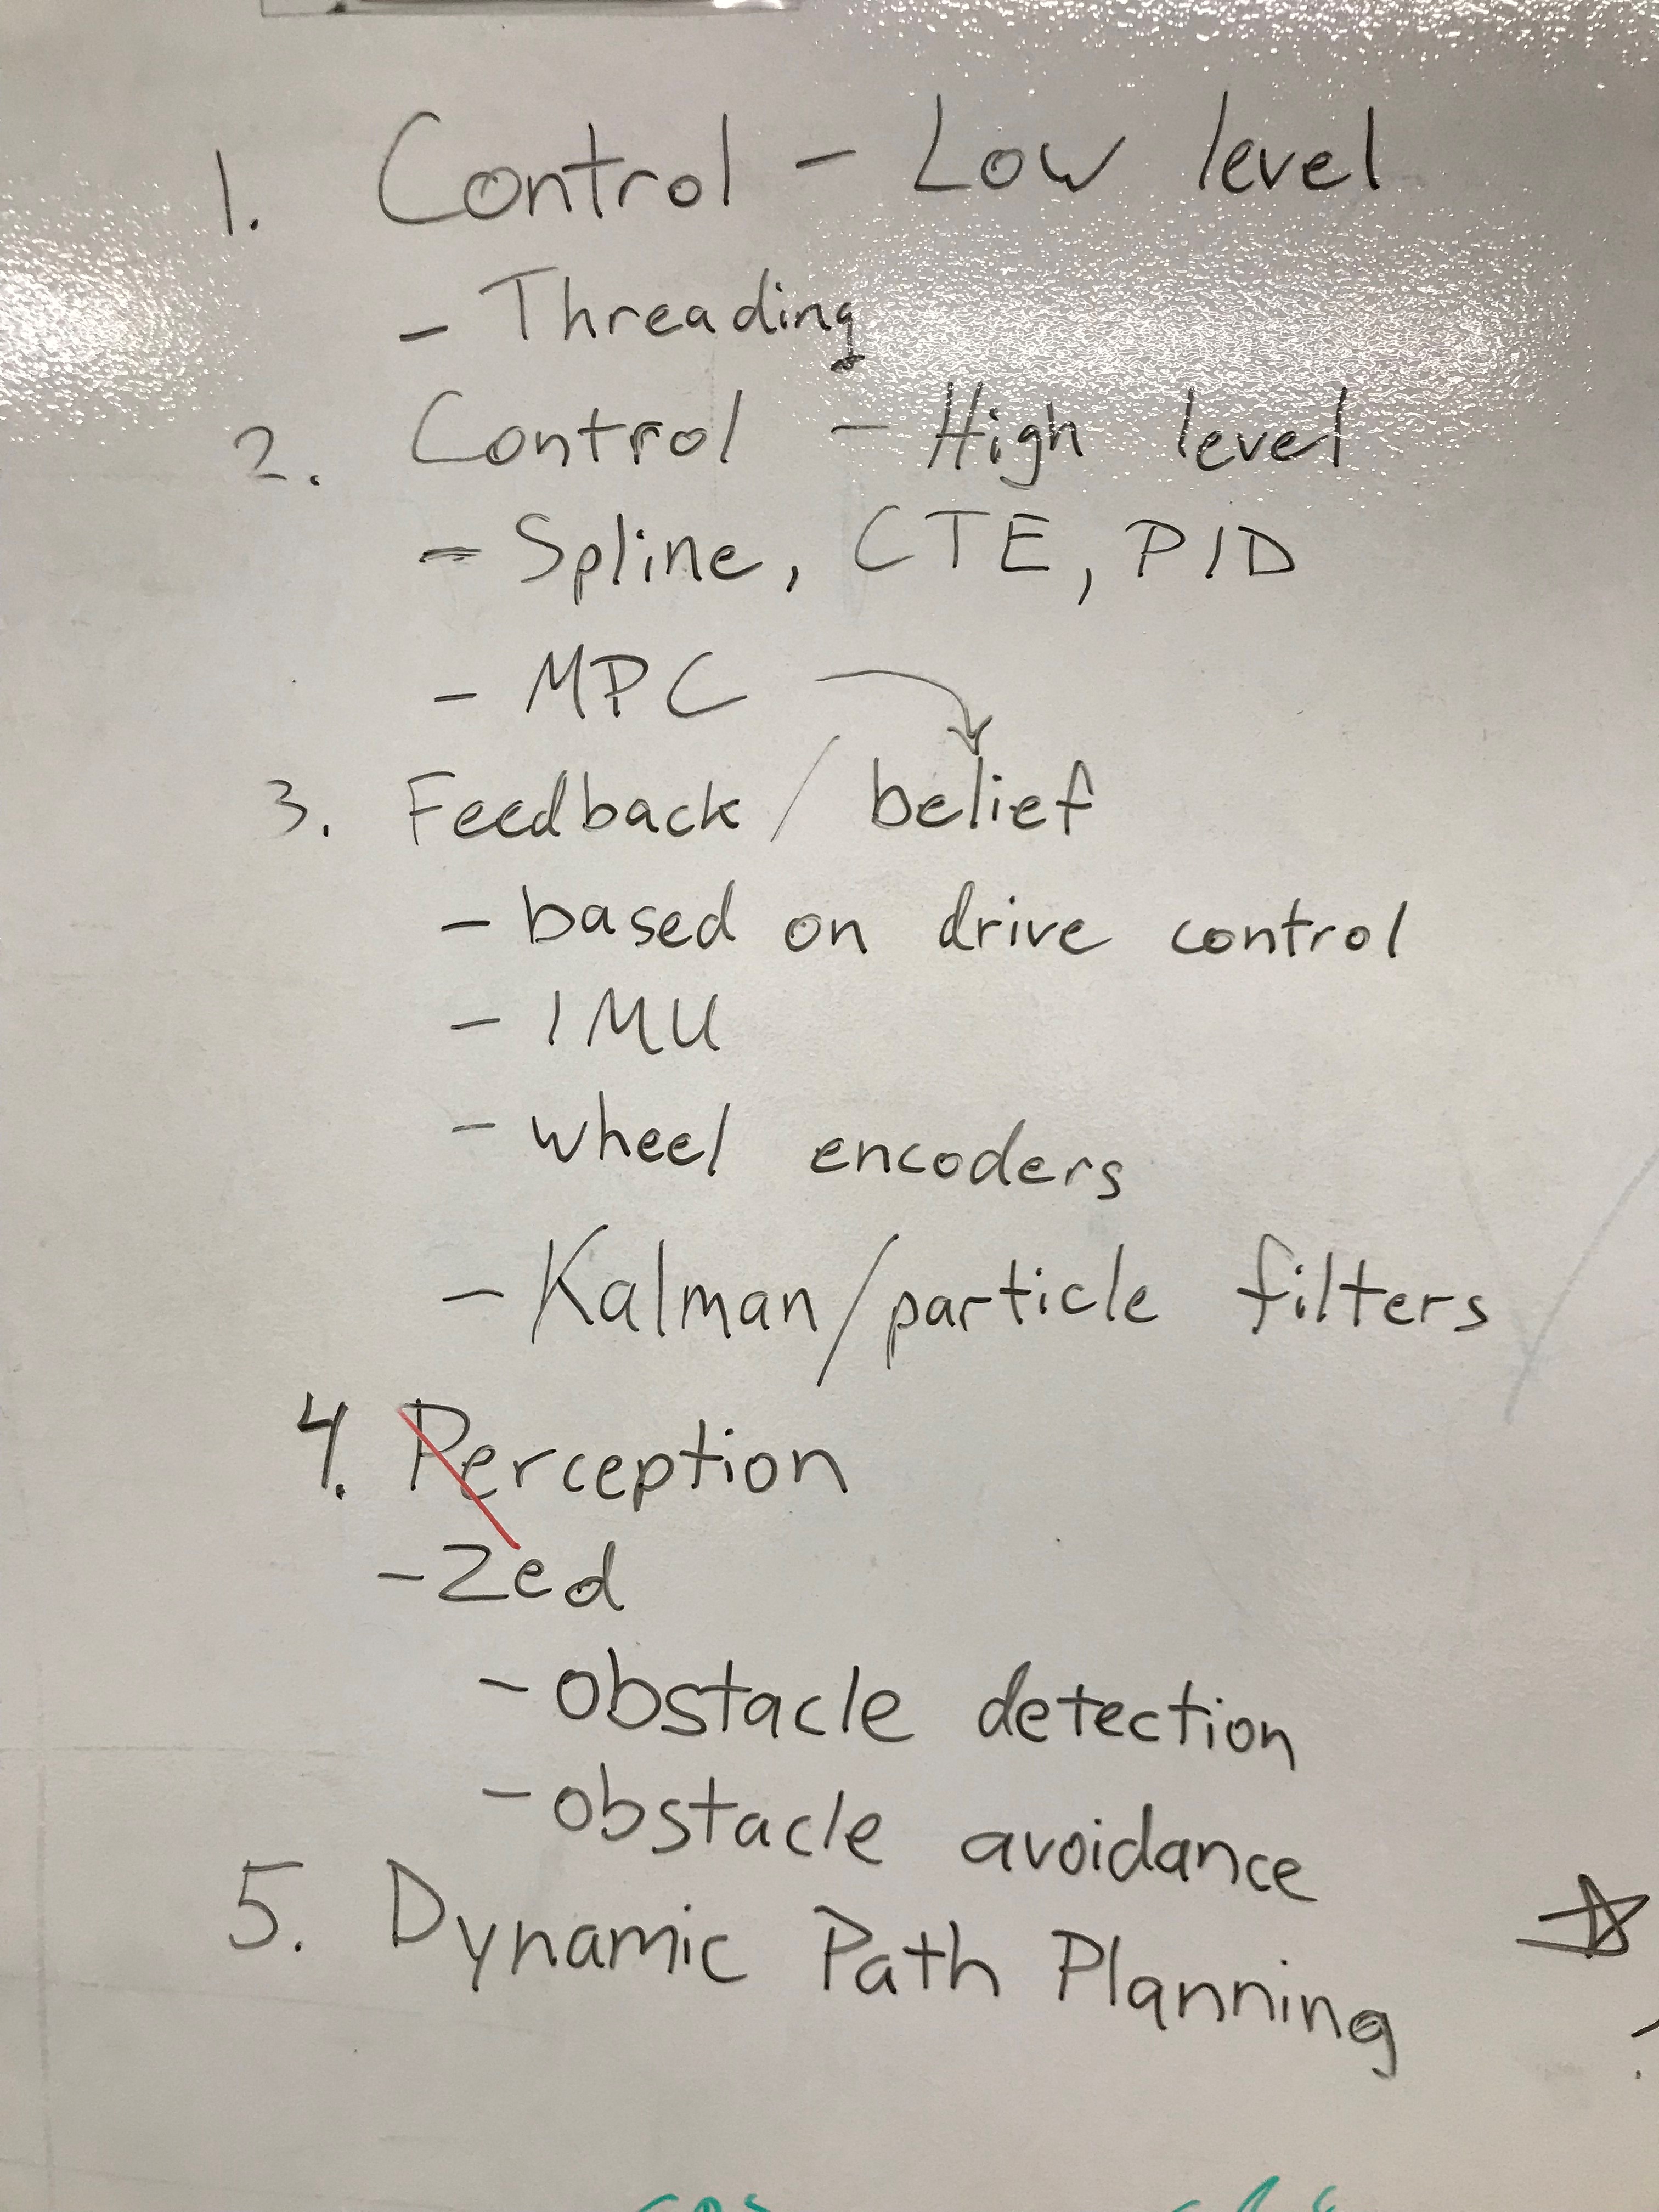 1. Control - Low level
- Threading
2. Control - High level
- Spline, CTE, PID
- MPC
3. Feedback / belief
- based on drive control
- IMU
- wheel encoders
- Kalman/particle filters
4. Perception
- Zed
- obstacle detection
- obstacle avoidance
5. Dynamic Path Planning